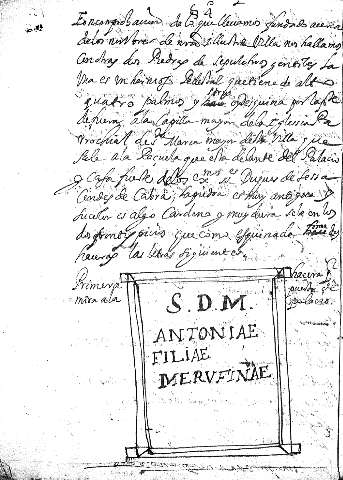 En comprobacion de lo que llevamos fundado acerca
de los nombres de nra Illustre Villa no hallamos
con dos Piedras de sepulchros gentiles la
Una es un hermoso Pedestal que tiene de alto
quatro palmos y haze esquina por la pte
de fuera a la Capilla mayor de la Iglesia Pa
rrochial de Sta Maria mayor desta Villa que
sale a la Plazuela que esta delante del Palacio
y Casa fuerte de los Exmos Duques de Sessa
Condes de Cabra; la piedra es muy antigua y
su color es algo Cardeno y muy dura esta en los
dos que como esquinada los
las letras siguientes
Primera
mira a la
hacera
S. D. M.
ANTONIAE
FILIAE
MERVFINAE